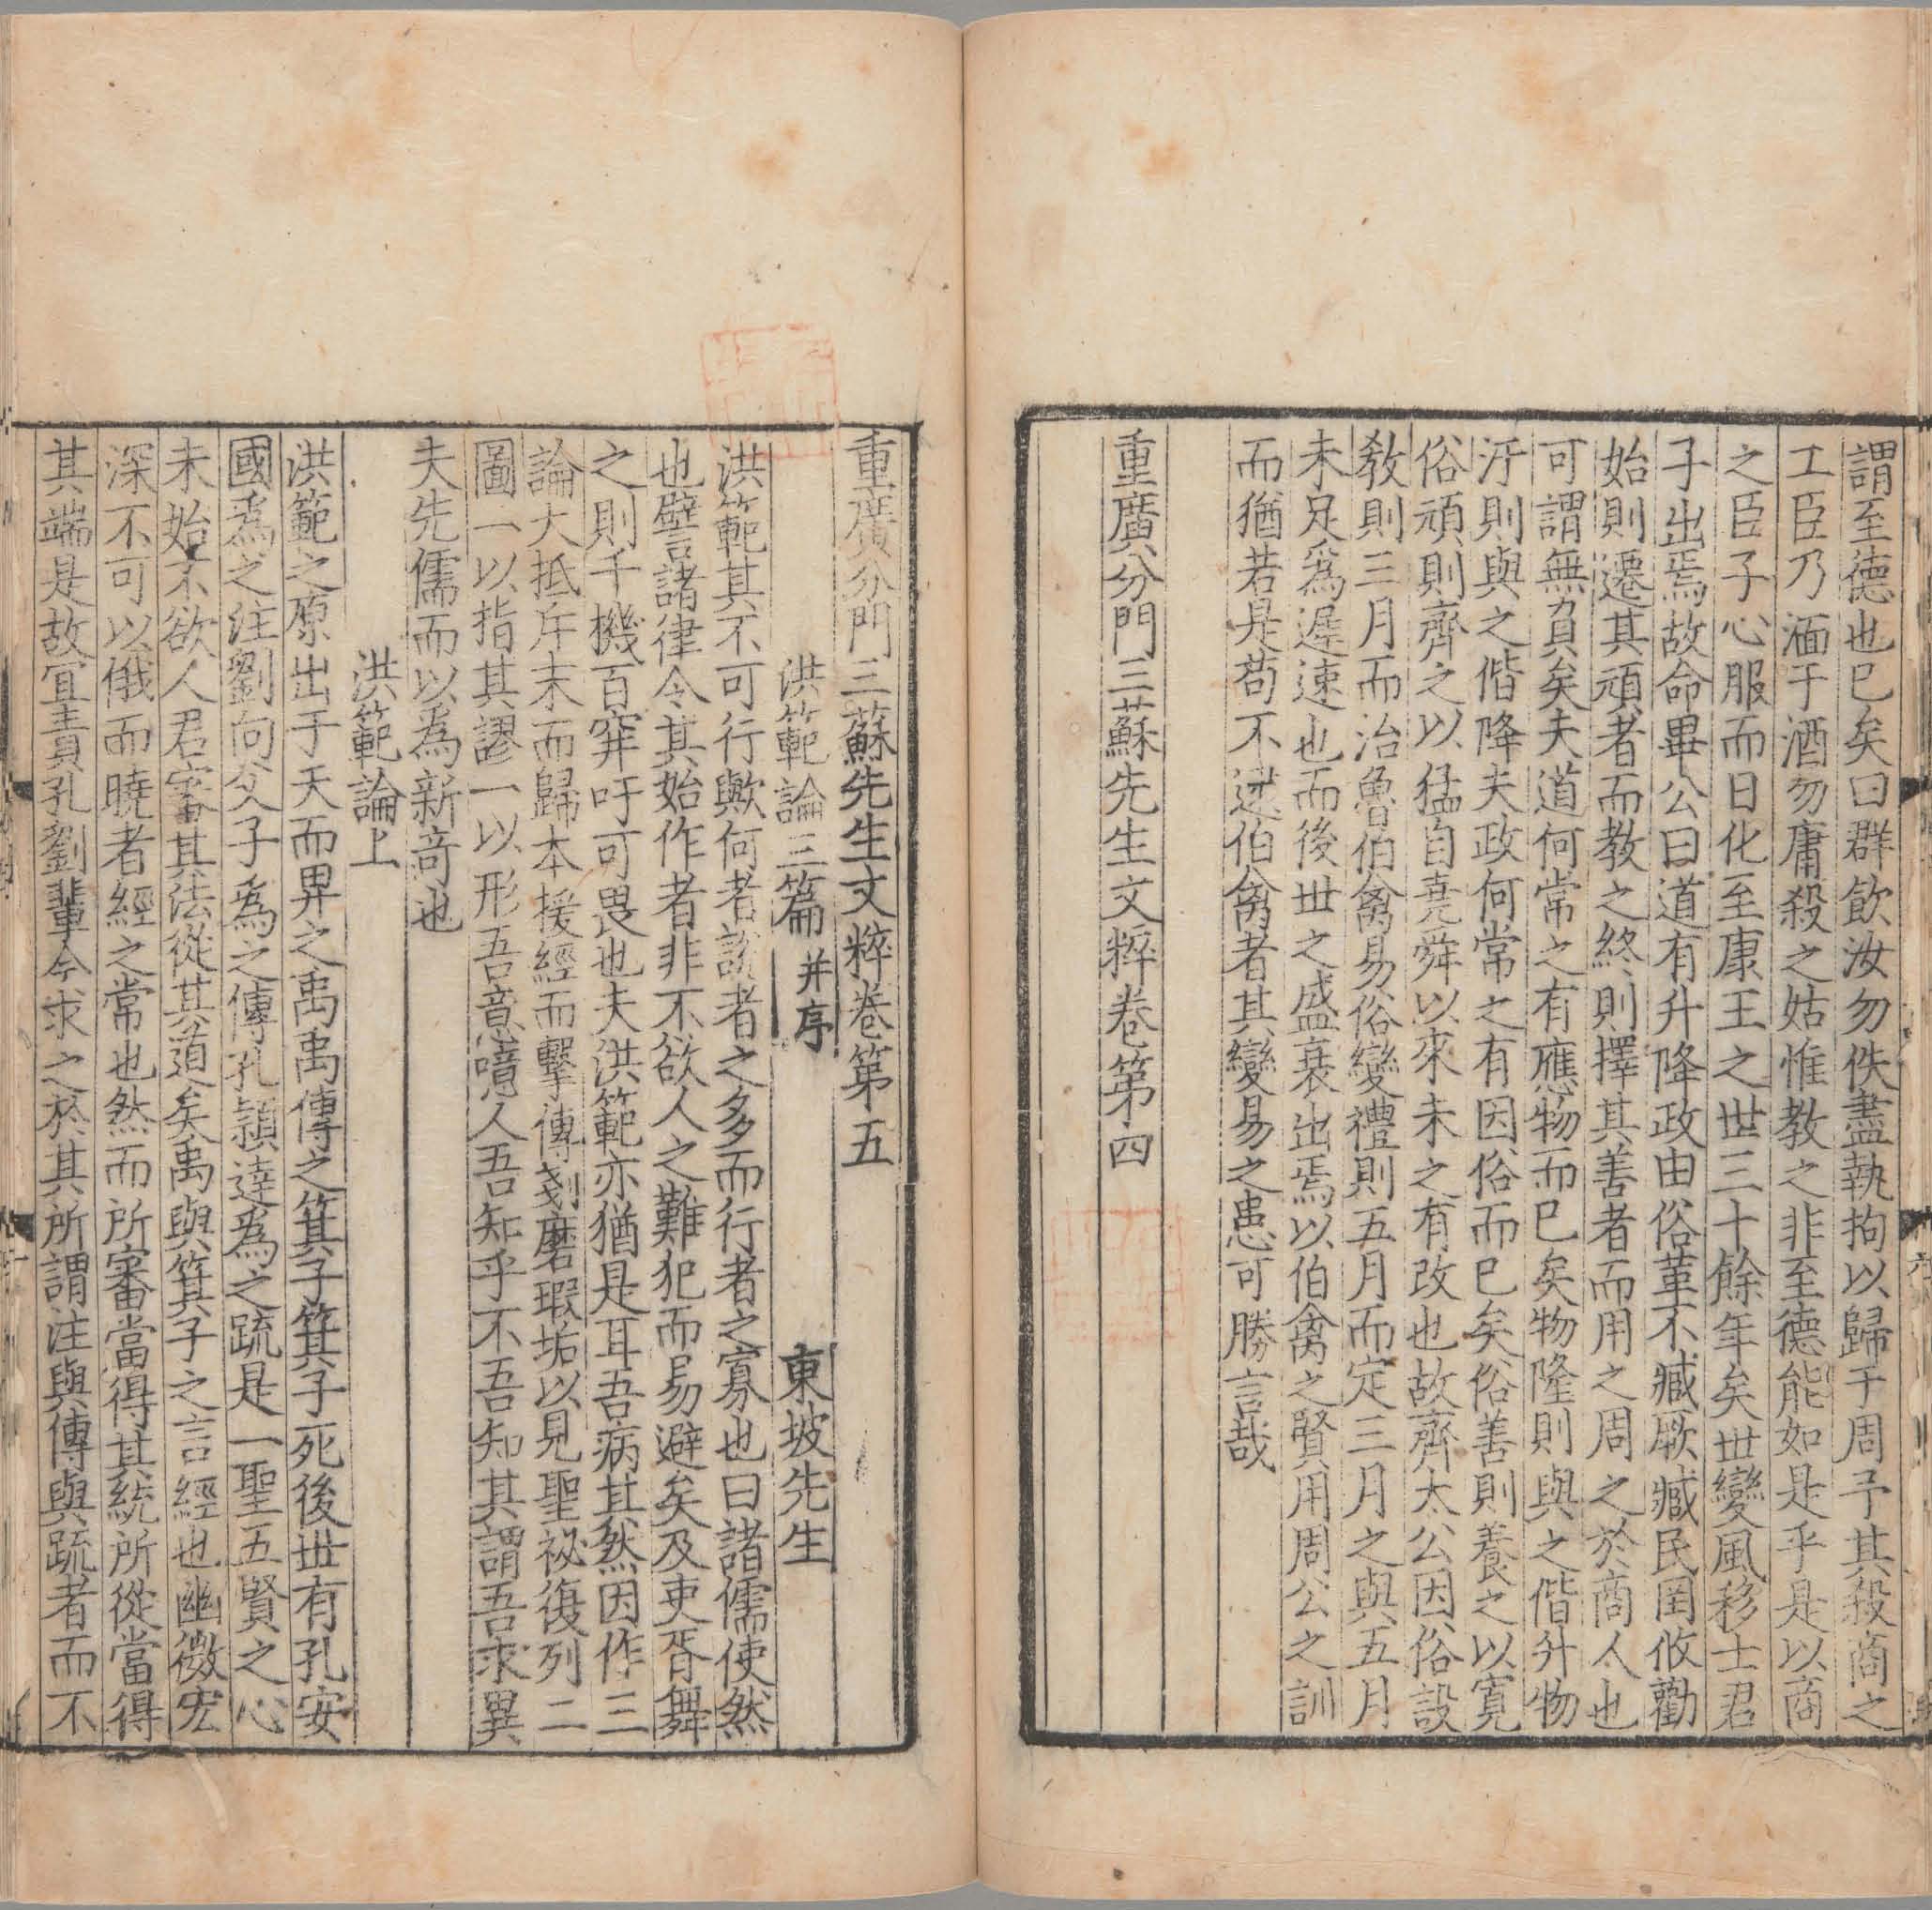 謂至德也已矣曰群飲汝勿佚盡執拘以歸于周予其殺商之
工臣乃湎于酒勿庸殺之姑惟教之非至德能如是乎是以商
之臣子心服而日化至康王之世三十餘年矣世變風移士君
子出焉故命畢公曰道有升降政由俗革不臧厥臧民罔攸勸
始則遷其頑者而教之終則擇其善者而用之周之於商人也
可謂無負矣夫道何常之有應物而已矣物隆則與之偕升物
汙則與之偕降夫政何常之有因俗而已矣俗善則養之以寬
俗頑則齊之以猛自堯舜以來未之有改也故齊太公因俗設
教則三月而治魯伯禽易俗變禮則五月而定三月之與五月
未足爲遲速也而後世之盛衰出焉以伯禽之賢用周公之訓
而猶若是苟不逮伯禽者其變易之患可勝言哉
重廣分門三蘇先生文粹卷第四
重廣分門三蘇先生文粹卷第五
洪範論三篇 并序 東坡先生
洪範其不可行歟何者說者之多而行者之寡也曰諸儒使然
也譬諸律令其始作者非不欲人之難犯而易避矣及吏胥舞
之則千機百穽吁可畏也夫洪範亦猶是耳吾病其然因作三
論大抵斥末而歸本援經而擊傳剗磨瑕垢以見聖祕復列二
圖一以指其謬一以形吾意噫人吾知乎不吾知其謂吾求異
夫先儒而以爲新竒也
洪範論上
洪範之原出于天而畀之禹禹傳之箕子箕子死後世有孔安
國爲之注劉向父子爲之傳孔穎達爲之疏是一聖五賢之心
未始不欲人君審其法從其道矣禹與箕子之言經也幽微宏
深不可以俄而曉者經之常也然而所審當得其統所從當得
其端是故宜責孔劉輩今求之於其所謂注與傳與疏者而不